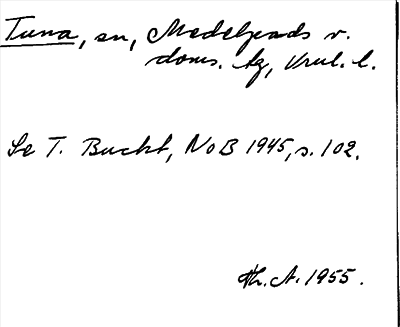 Tuna, sn, Medelpads v.
doms. tg, Vnrl. l.
Se T. Bucht, NoB 1945, s. 102.
Th. A. 1955.